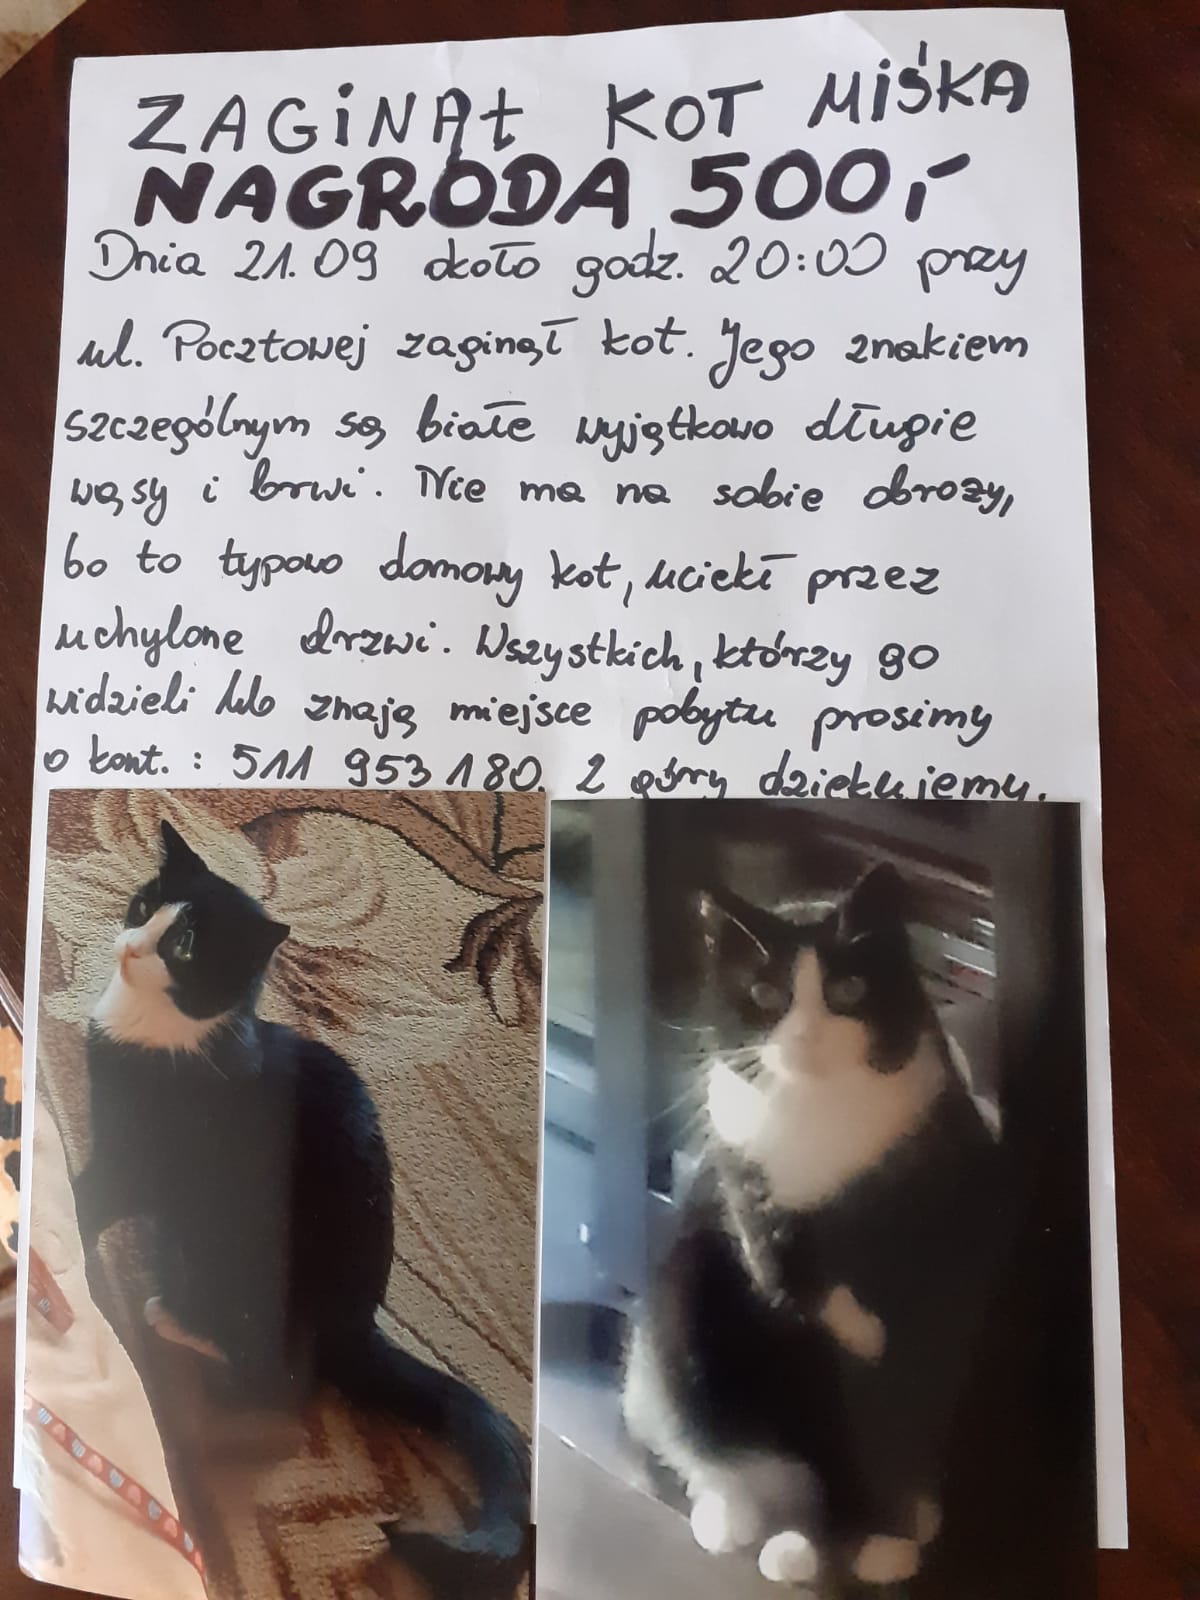 ZAGINĄŁ KOT MIŚKA
NAGRODA 500,-
Dnia 21.09 około godz. 20:00 przy
ul. Pocztowej zaginął kot. Jego znakiem
szczególnym są białe wyjątkowo długie
wąsy i brwi. Nie ma na sobie obroży,
bo to typowo domowy kot, uciekł przez
uchylone drzwi. Wszystkich, którzy go
widzieli lub znają miejsce pobytu prosimy
o kont. : 511 953 180. Z góry dziękujemy.